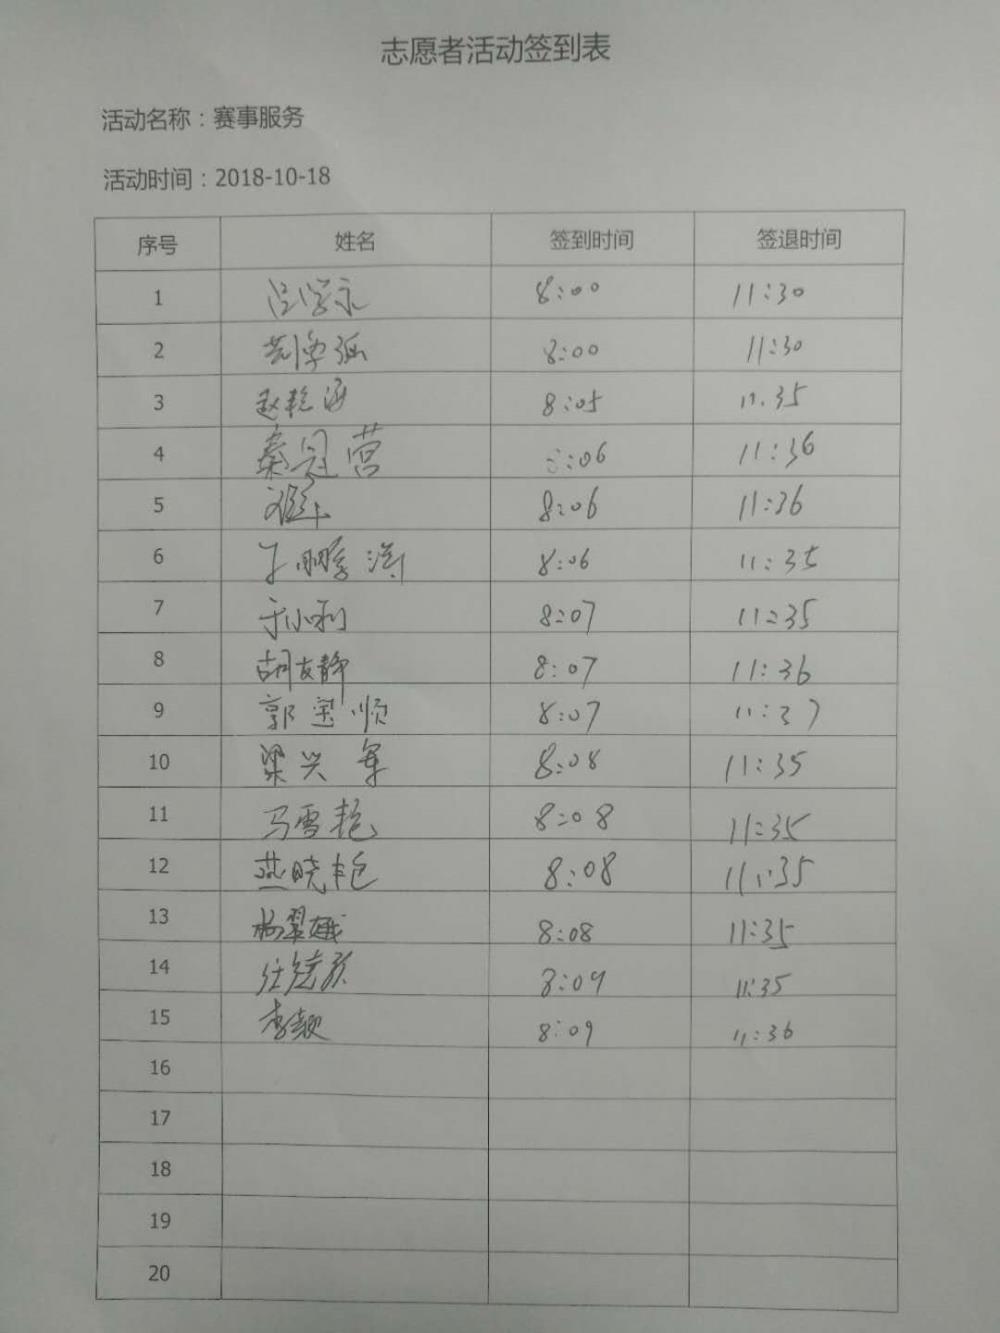 志愿者活动签到表
活动名称：赛事服务
活动时间：2018-10-18
序号 姓名 签到时间 签退时间
1 吕学永 8:00 11:30
2 8:00 11:30
3 赵艳海 8:05 11.35
4 秦冠营 8:06 11:36
5 8:06 11:36
6 8:06 11:35
7 于小利 8:07 11:35
8 胡友静 8:07 11:36
9 郭宝顺 8:07 11:37
10 梁兴军 8:08 11:35
11 马雪艳 8:08 11:35
12 燕晓艳 8:08 11:35
13 杨翠娥 8:08 11:35
14 8:09 11:35
15 李颖 8:09 11:36
16
17
18
19
20